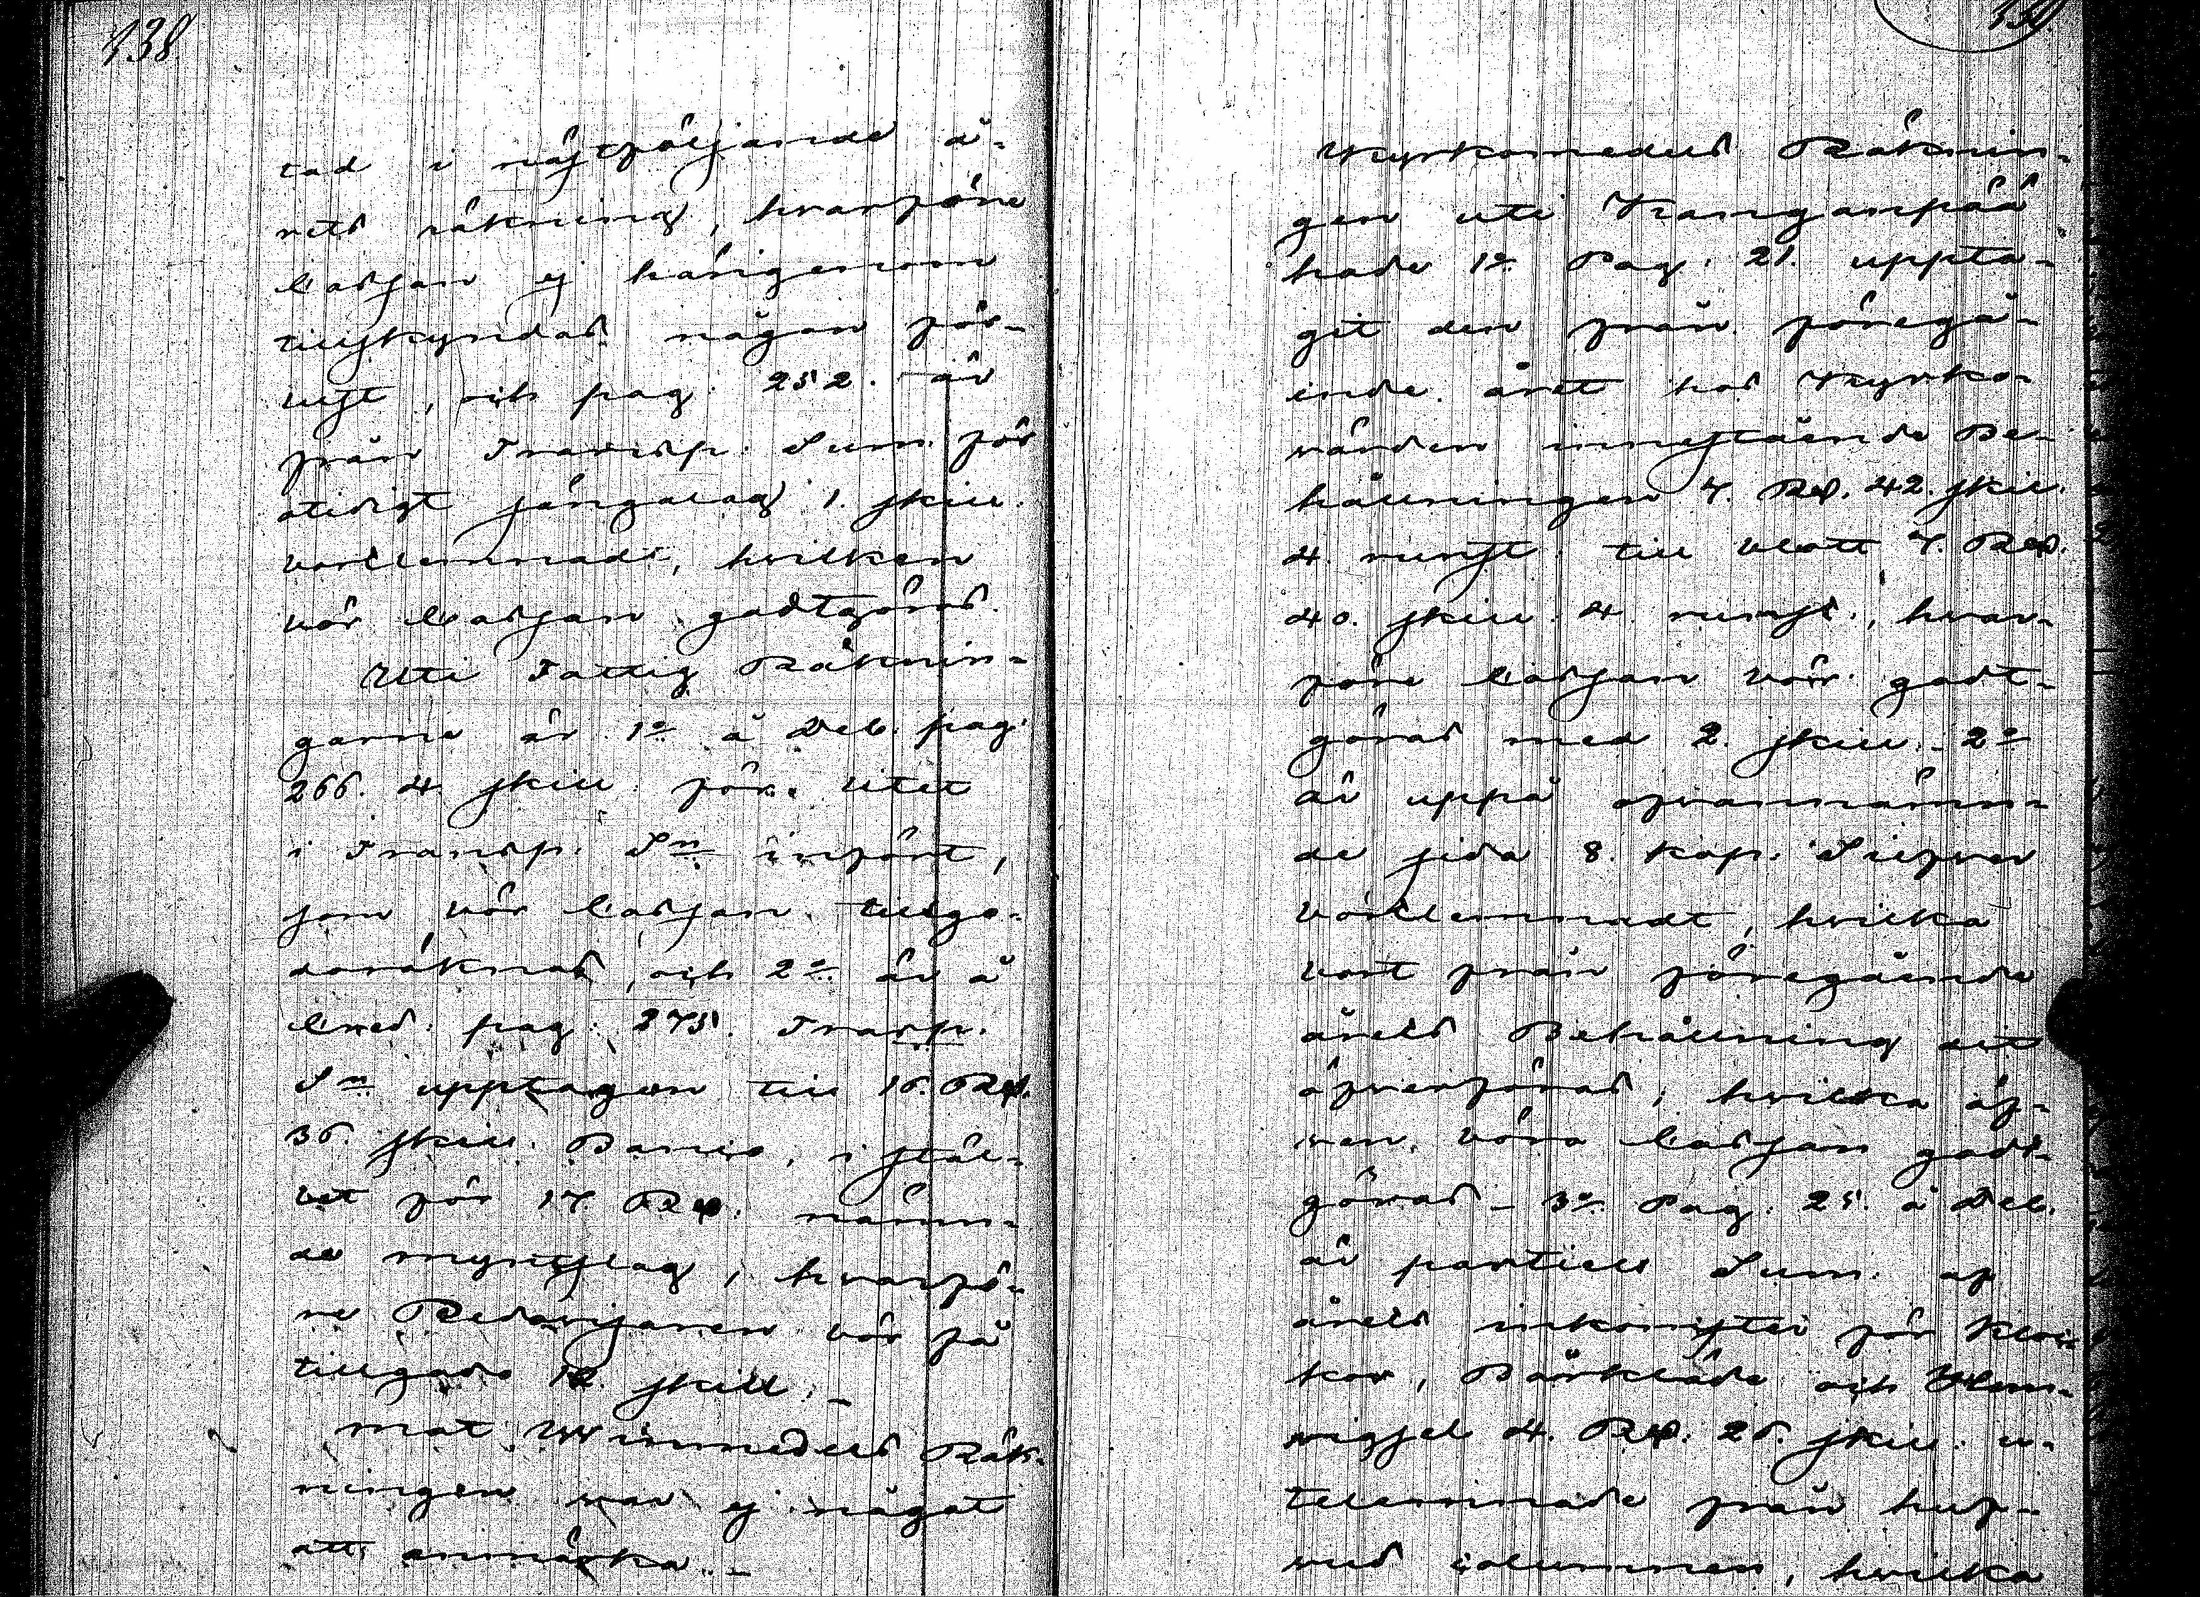 138.
tad i nästföljande å-
rets räkning, hvarföre
Cassan ej härigenom
tillskyndas någon för-
lust, och pag. 252. är
från Transp. Sum. för
otidigt sängalag 1. skill.
bortlemnad, hvilken
bör Cassan godtgöras.
Uti Fattig Räknin-
garne är 1o å Deb. pag.
266. 4 skill. för litet
i Transp. Sn infört,
som bör Cassan tillgo-
doräknas, och 2o är å
Cred. pag. 275. Trasp.
Sn upptagen till 16. Rd.
36. skill. Banco, i stäl-
let för 17. Rd. nämn-
de myntslag, hvarfö-
re Redovisaren bör få
tillgodo 12 skill. –
mot Winmedels Räk-
ningen war ej något
att anmärka. –
139.
Kyrkomedels Räknin-
gen uti Kanganpää
hade 1o Pag. 21. uppta-
git den från föregå-
ende året hos Kyrko-
värden innestående Be-
hållningen 7. Rd. 42. skill.
4. runst. till blott 7. Rd.
40. skill. 4. runst., hvar-
före Cassan bör godt-
göras med 2. skill. – 2o
är uppå ofvannämn-
de sida 8. kop. Silfver
bortlemnadt, hvilka
bort från föregående
årets Behållning dit
öfverföras, hvilka äf-
ven böra Cassan godt-
göras – 3o Pag. 25. å Deb.
är partiell Sum. af
årets inkomster för Kloc-
kor, Bårkläde och
wigsel 4. Rd. 26. skill. u-
telemnade från huf-
vud columnen, hvilka